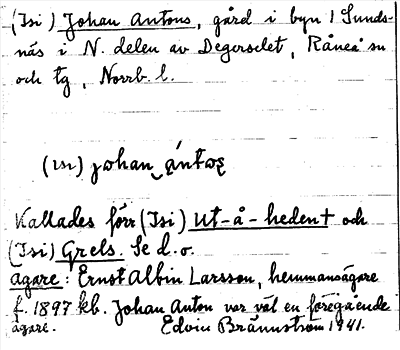 (Isi) Johan Antons, gård i byn i Sunds-
näs i N. delen av Degerselet, Råneå sn
och tg, Norrb. l.
(ısı) johan ántɷs
Kallades förr (Isi) Ut-å-heden † och
(Isi) Grels. Se d. o.
Ägare: Ernst Albin Larsson, hemmansägare
f. 1897 kb. Johan Anton var väl en föregående
ägare. Edvin Brännström 1941.